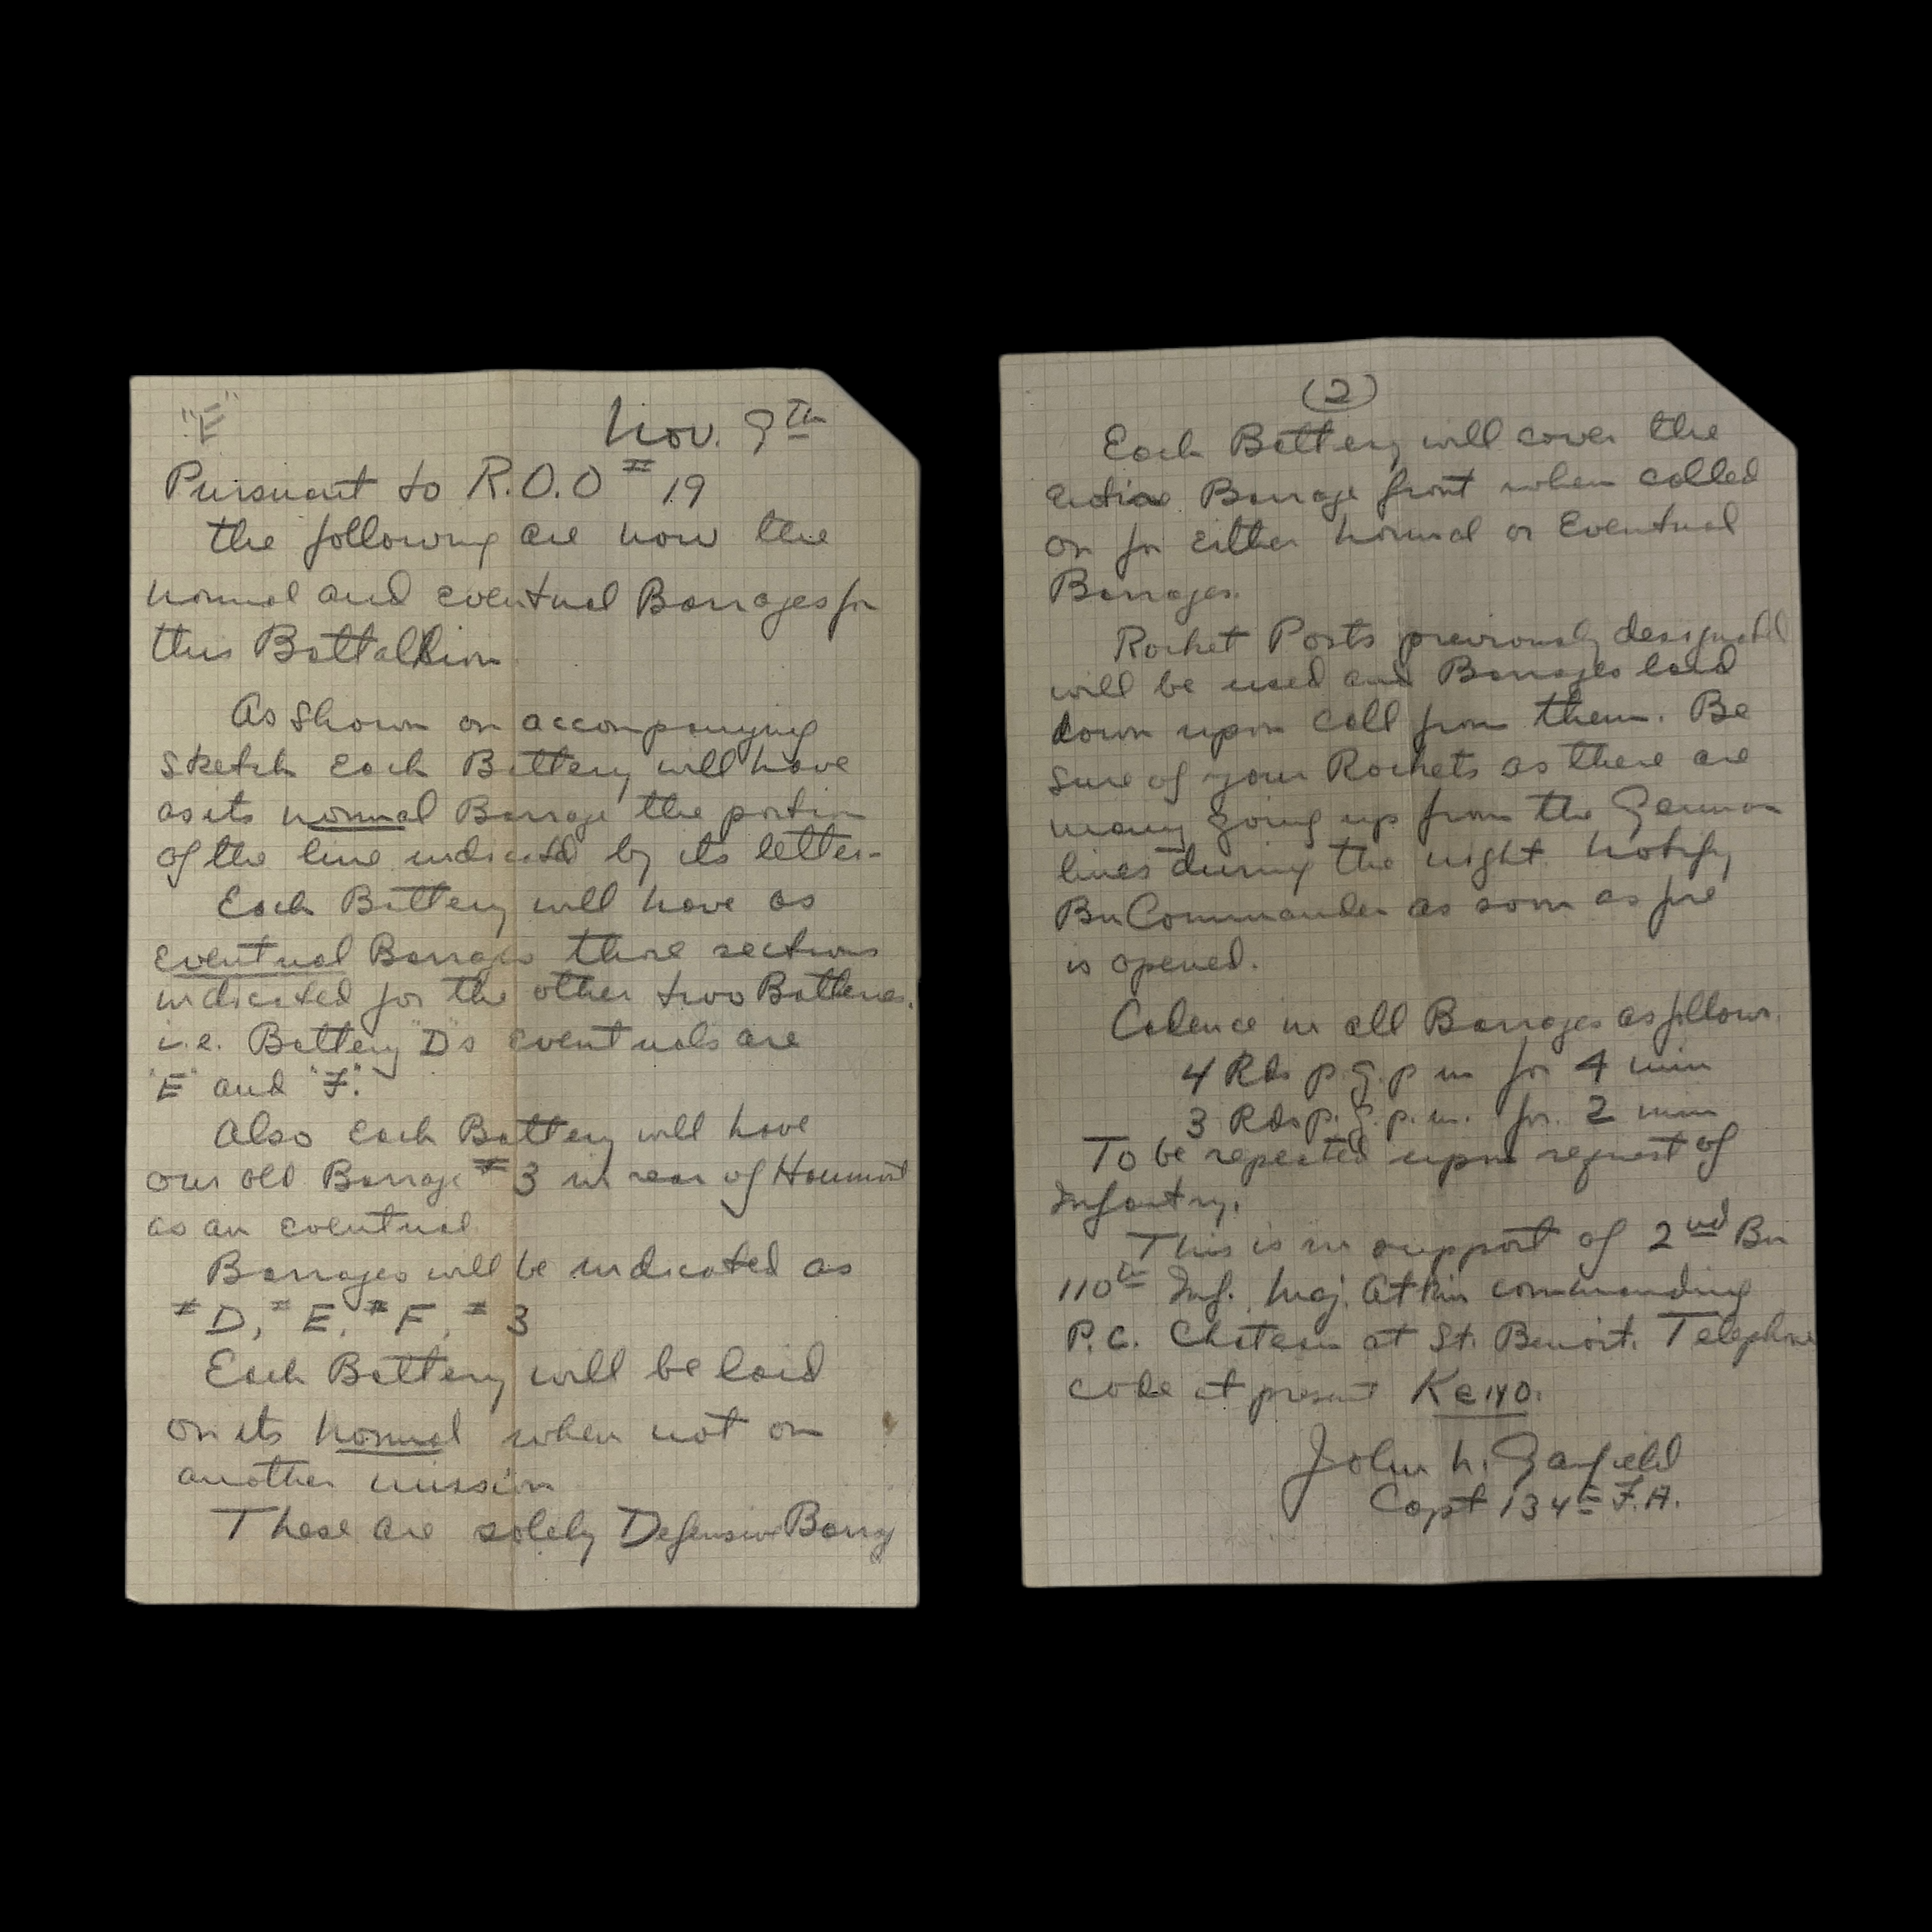 "E"
Nov. 9th
Pursuant to R.O.O # 19
the following are now the
normal and eventual Barrages for
this Battallion
As shown on accompanying
sketch Each Battery will have
as its normal Barrage the portion
of the line indicated by its letter-
Each Battery will have as
eventual Barrages those sections
indicated for the other two Batteries.
i.e. Battery "D"s eventuals are
"E" and "F".
Also Each Battery will have
our old Barrage # 3 in rear of Haumont
as an eventual
Barrages will be indicated as
#D, #E, #F, #3
Each Battery will be laid
on its normal when not on
another mission
These are solely Defensive Barrag
(2)
Each Battery will cover the
entire Barrage front when called
on for either Normal or Eventual
Barrages.
Rocket Posts previously designated
will be used and Barrages laid
down upon call from them. Be
sure of your Rockets as there are
many going up from the German
lines during the night. Notify
Bn Commander as soon as fire
is opened.
Cadence in all Barrages as follows.
4 Rds p.g.p m for 4 min
3 Rds p.g.p.m. for 2 min
To be repeated upon request of
Infantry.
This is in support of 2nd Bn
110th Inf. Maj. Atkin commanding
P.C. Chateau at St. Benoit. Telephone
code at present Keno.
John N. Garfield
Capt 134th F.A.